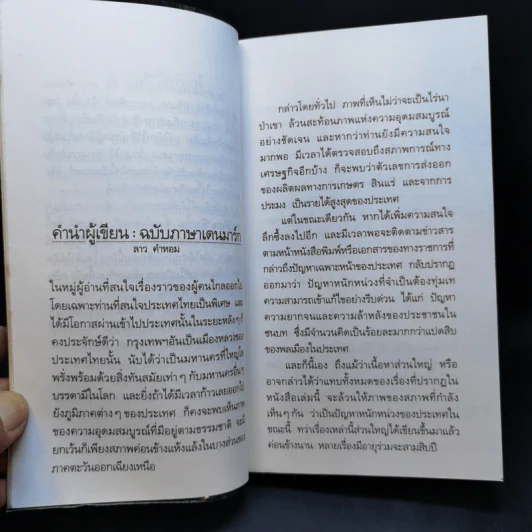 คำนำผู้เขียน : ฉบับภาษาเดนมาร์ก
ลาว คำหอม
ในหมู่ผู้อ่านที่สนใจเรื่องราวของผู้คนไกลออกไป
โดยเฉพาะท่านที่สนใจประเทศไทยเป็นพิเศษ และ
ได้มีโอกาสผ่านเข้าไปประเทศนั้นในระยะหลังๆ ก็
คงประจักษ์ดีว่า กรุงเทพฯอันเป็นเมืองหลวงของ
ประเทศไทยนั้น นับได้ว่าเป็นมหานครที่ใหญ่โต
พรั่งพร้อมด้วยสิ่งทันสมัยเท่าๆ กับมหานครอื่นๆ
บรรดามีในโลก และยิ่งถ้าได้มีเวลาก้าวเลยออกไป
ยังภูมิภาคต่างๆ ของประเทศ ก็คงจะพบเห็นภาพ
ของความอุดมสมบูรณ์ที่มีอยู่ตามธรรมชาติ จะมี
ยกเว้นก็เพียงสภาพค่อนข้างแห้งแล้งในบางส่วนของ
ภาคตะวันออกเฉียงเหนือ
กล่าวโดยทั่วไป ภาพที่เห็นไม่ว่าจะเป็นไร่นา
ป่าเขา ล้วนสะท้อนภาพแห่งความอุดมสมบูรณ์
อย่างชัดเจน และหากว่าท่านยังมีความสนใจ
มากพอ มีเวลาได้ตรวจสอบถึงสภาพการณ์ทาง
เศรษฐกิจอีกบ้าง ก็จะพบว่าตัวเลขการส่งออก
ของผลิตผลทางการเกษตร สินแร่ และจากการ
ประมง เป็นรายได้สูงสุดของประเทศ
แต่ในขณะเดียวกัน หากได้เพิ่มความสนใจ
ลึกซึ้งลงไปอีก และมีเวลาพอจะติดตามข่าวสาร
ตามหน้าหนังสือพิมพ์หรือเอกสารของทางราชการที่
กล่าวถึงปัญหาเฉพาะหน้าของประเทศ กลับปรากฏ
ออกมาว่า ปัญหาหนักหน่วงที่จำเป็นต้องทุ่มเท
ความสามารถเข้าแก้ไขอย่างรีบด่วน ได้แก่ ปัญหา
ความยากจนและความล้าหลังของประชาชนใน
ชนบท ซึ่งมีจำนวนคิดเป็นร้อยละมากกว่าแปดสิบ
ของพลเมืองในประเทศ
และก็นี่เอง ถึงแม้ว่าเนื้อหาส่วนใหญ่ หรือ
อาจกล่าวได้ว่าแทบทั้งหมดของเรื่องที่ปรากฏใน
หนังสือเล่มนี้ จะล้วนให้ภาพของสภาพที่กำลัง
เห็นๆ กัน ว่าเป็นปัญหาหนักหน่วงของประเทศใน
ขณะนี้ ทว่าเรื่องเหล่านี้ส่วนใหญ่ได้เขียนขึ้นมาแล้ว
ค่อนข้างนาน หลายเรื่องมีอายุร่วมจะสามสิบปี